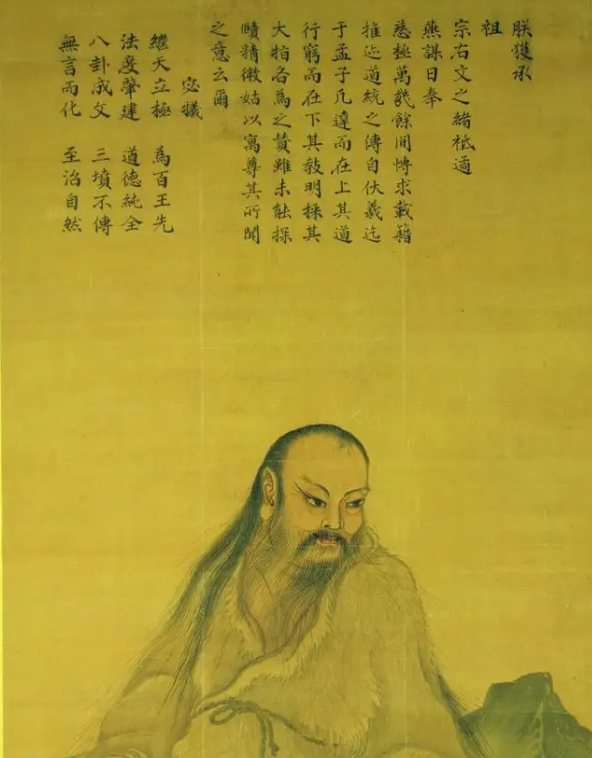 朕獲承
祖
宗右文之緒祗遹
燕謀日奉
慈極萬幾餘間博求載籍
推迹道統之傳自伏羲迄
于孟子凡達而在上其道
行窮而在下其教明採其
大指各為之贊雖未能探
賾精微姑以寓尊其所聞
之意云爾
宓犧
繼天立極 為百王先
法度肇建 道德純全
八卦成文 三墳不傳
無言而化 至治自然